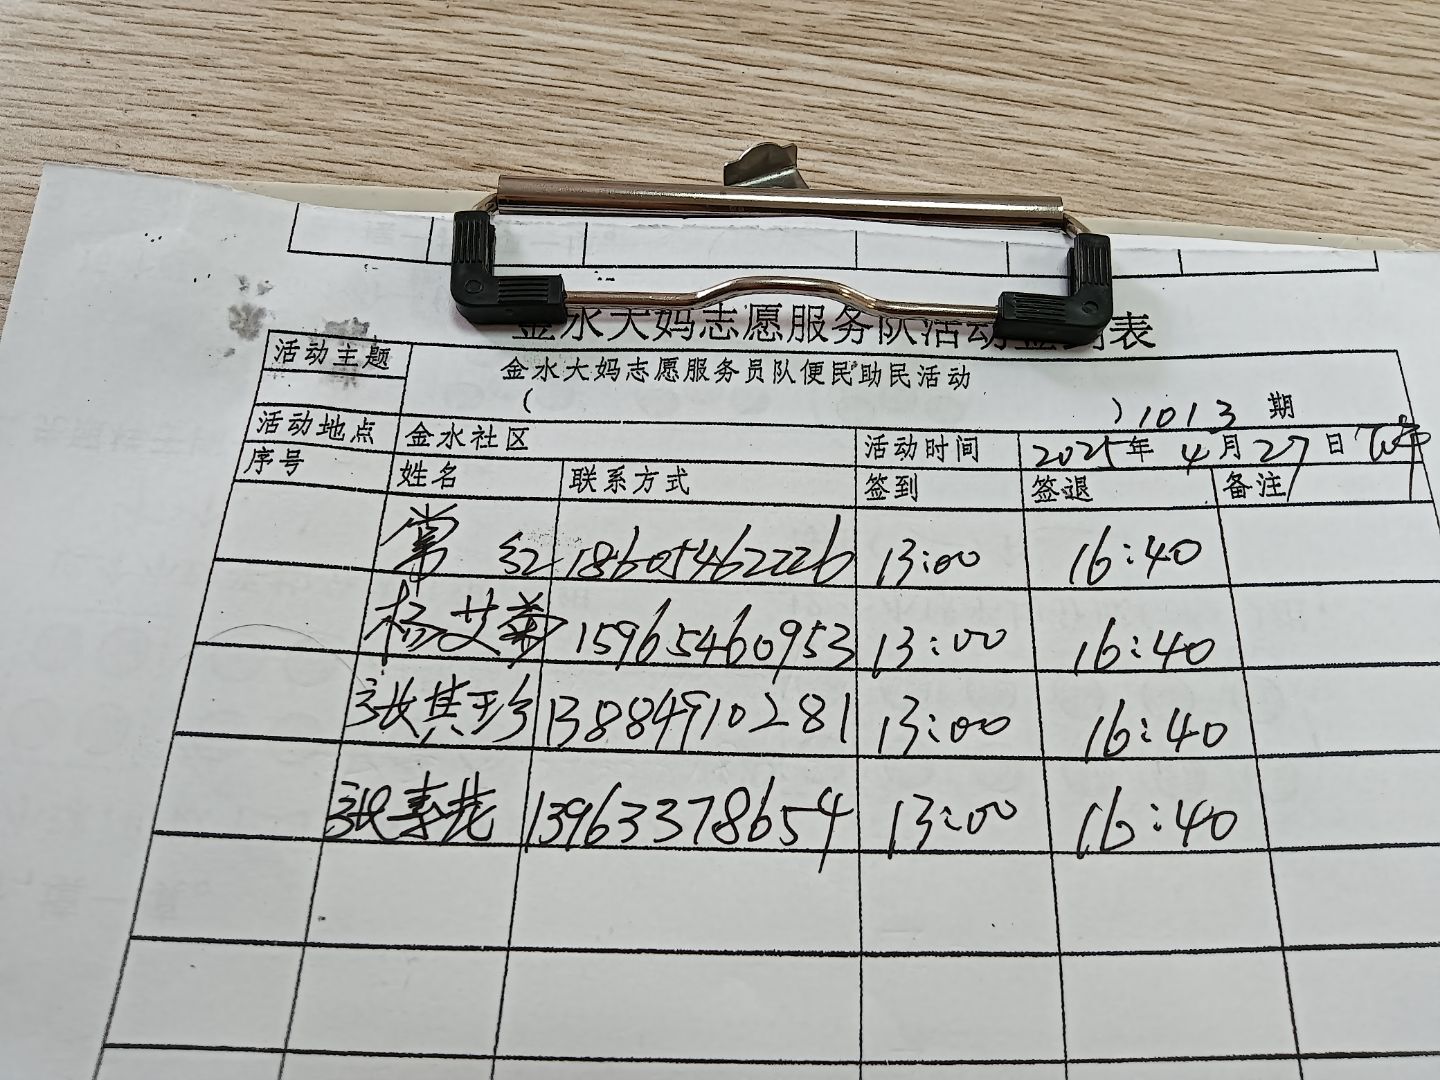 金水大妈志愿服务队活动签到表
活动主题 金水大妈志愿服务员队便民助民活动
( ) 1013 期
活动地点 金水社区 活动时间 2025年 4月27日 下午
序号 姓名 联系方式 签到 签退 备注
常红 18605462226 13:00 16:40
杨艾菊 15965460953 13:00 16:40
张其珍 13884910281 13:00 16:40
张素花 13963378654 13:00 16:40